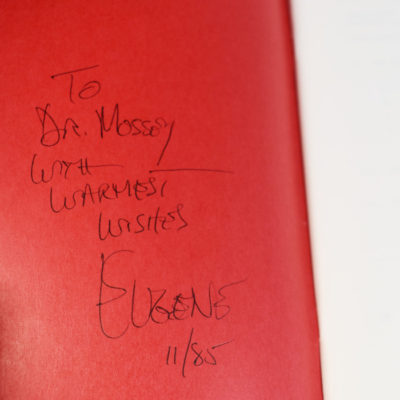 To
Dr. Mossey
With
Warmest
Wishes
Eugene
11/85